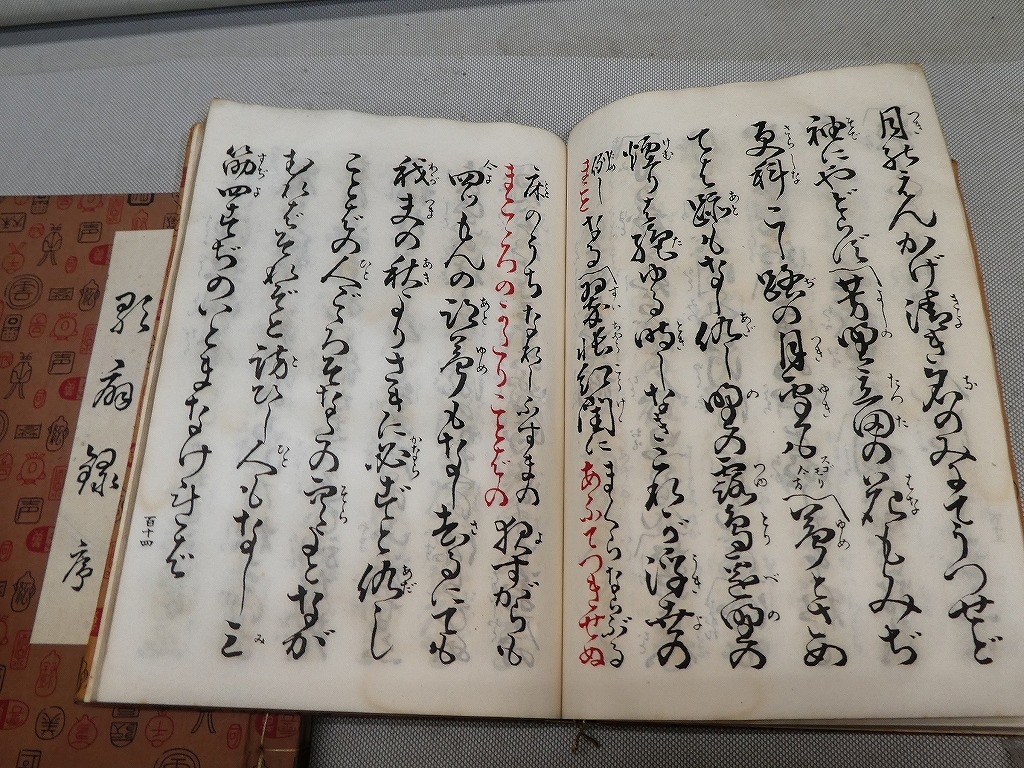 月のえんかげ清き名のみにてうつせど
袖にやどらず芳野立田の花もみぢ
更科こし路の月雪も夢とさめ
ても跡もなし仇し野の露鳥辺野の
煙りは絶ゆる時しなきこれが浮世の
まことなる翠帳紅閨にまくらならぶる
床のうちなれしふすまの夜すがらも
四つもんの跡夢もなしさるにても
我夫の秋よりさきに必ずと仇し
ことばの人ごころそなたの空よとなが
むれどそれぞと訪ひし人もなし三
筋四すぢのいとまなけれど
百十四
序